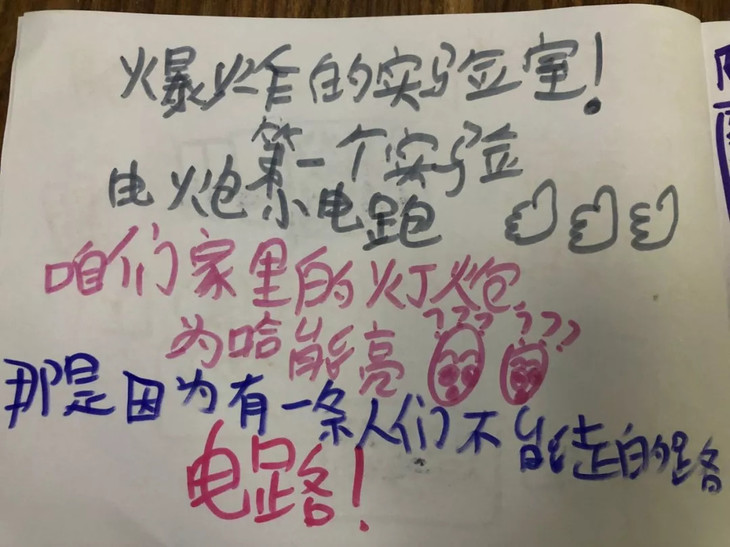 爆炸的实验室!
第一个实验
电炮小电跑
咱们家里的灯炮
为哈能亮 ??? ???
那是因为有一条人们不能走的路
电路!